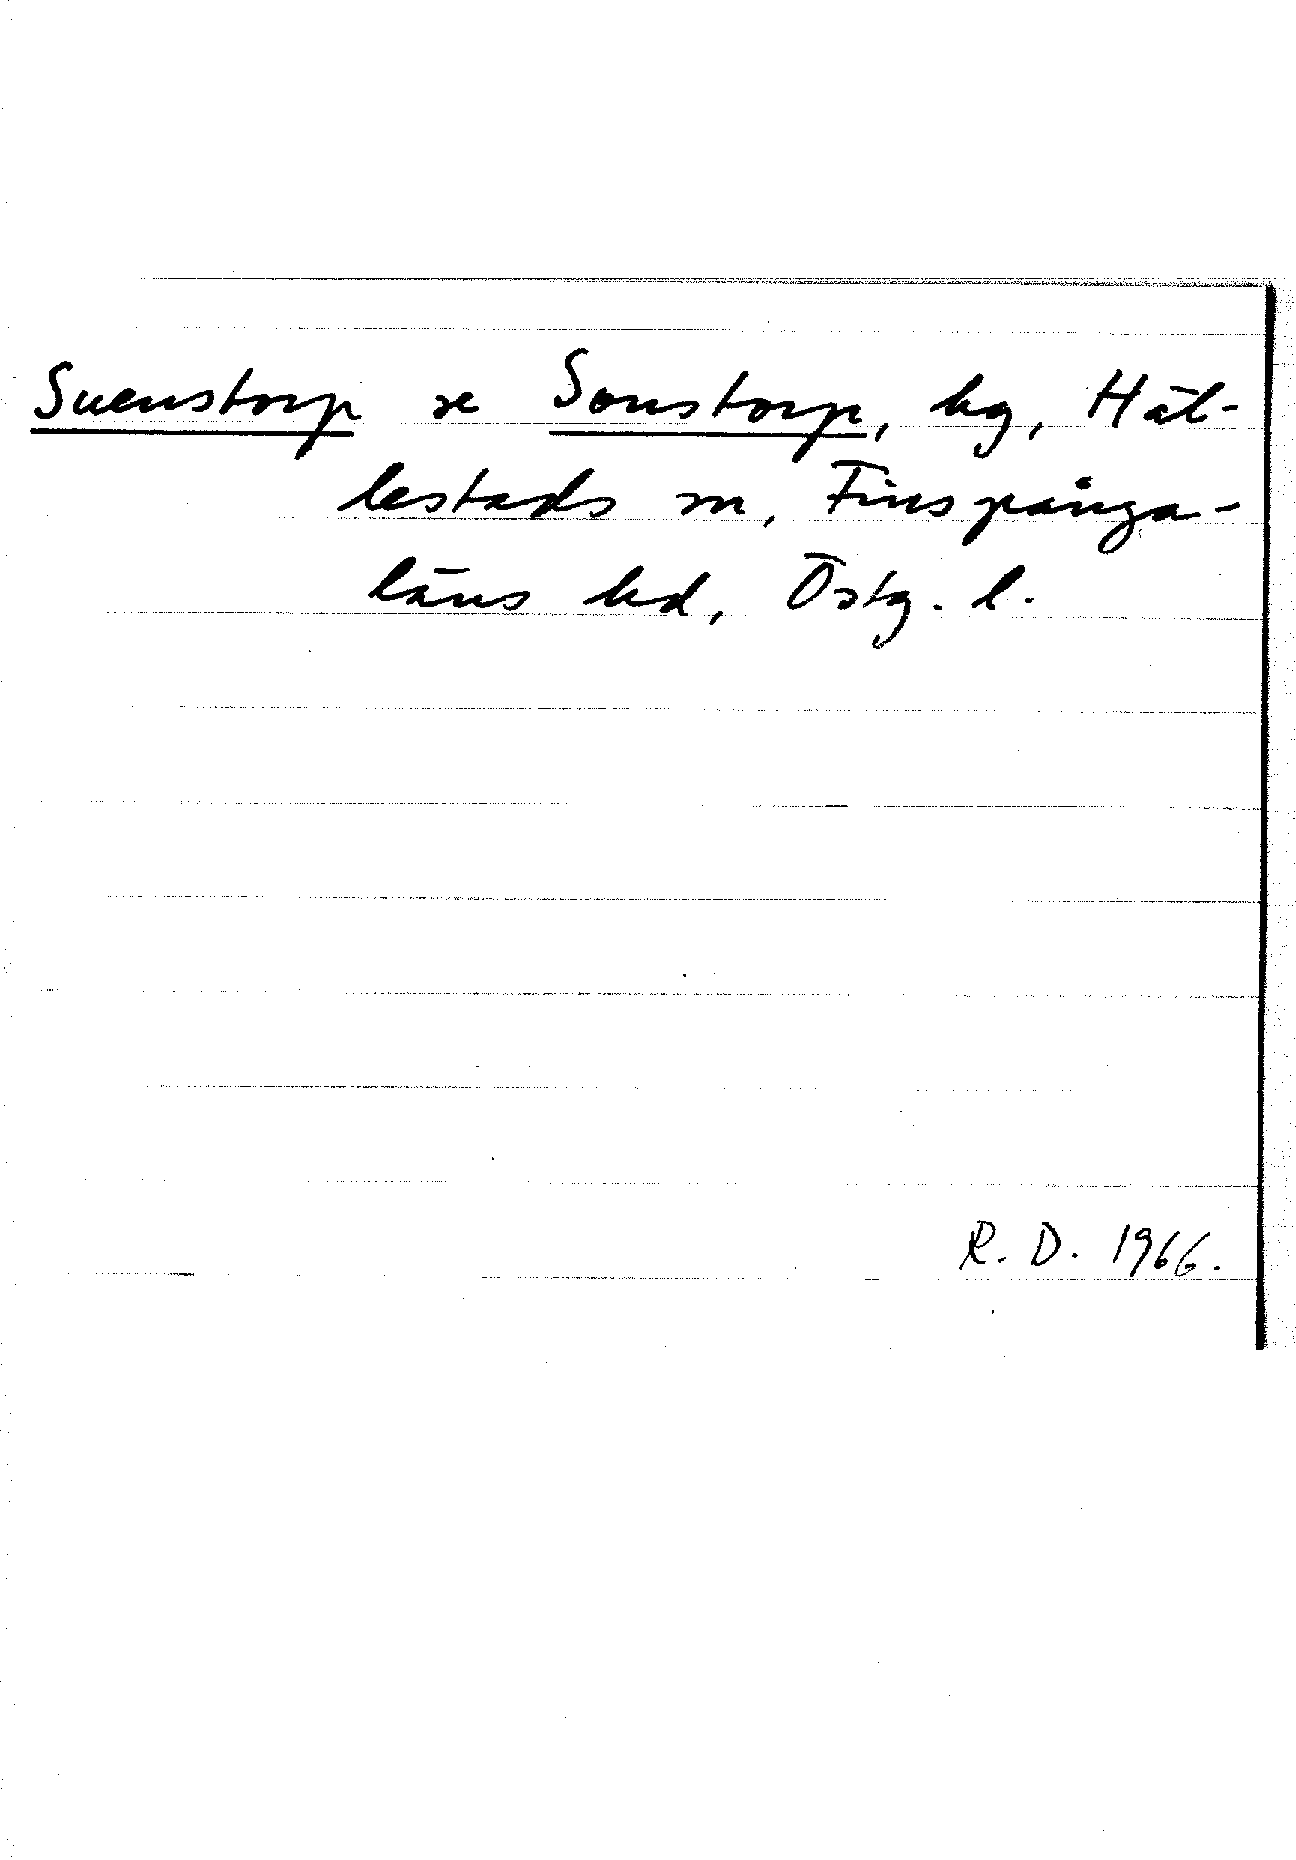 Svenstorp se Sonstorp, hg, Häl-
lestads sn, Finspånga-
läns hd, Östg. l.
R. D. 1966.